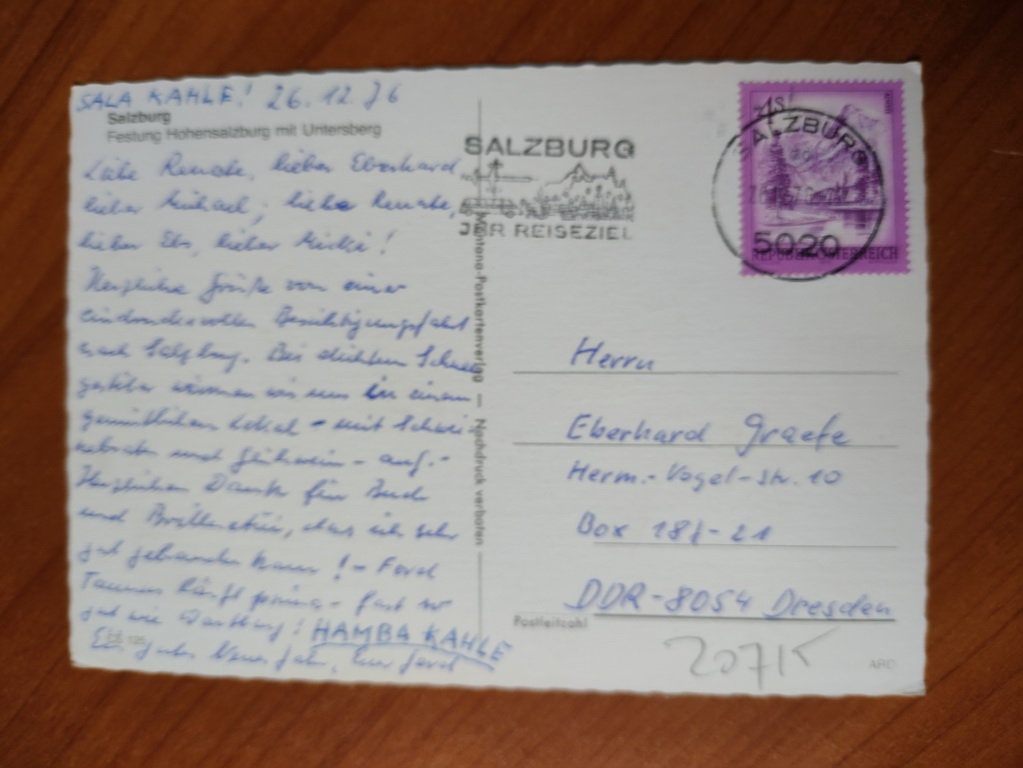 SALA KAHLE! 26.12.76
Salzburg
Festung Hohensalzburg mit Untersberg
Liebe Renate, lieber Eberhard,
lieber Michael; liebe Renate,
lieber Ebs, lieber Michi!
Herzliche Grüße von einer
eindrucksvollen Besichtigungsfahrt
nach Salzburg. Bei dichtem Schnee
gestöber wärmen wir uns in einem
gemütlichen Lokal - mit Schwei-
nebraten und Glühwein - auf.-
Herzlichen Dank für Buch
und Brillenetui, das ich sehr
gut gebrauchen kann! - Ford
Taunus läuft prima - fast so
gut wie Wartburg! HAMBA KAHLE
Ein gutes Neues Jahr, Euer
Montana-Postkartenverlag — Nachdruck verboten
SALZBURG
IHR REISEZIEL
4S
SALZBURG
5020
REPUBLIK ÖSTERREICH
Herrn
Eberhard Graefe
Herm.-Vogel-Str. 10
Box 187-21
DDR-8054 Dresden
Postleitzahl